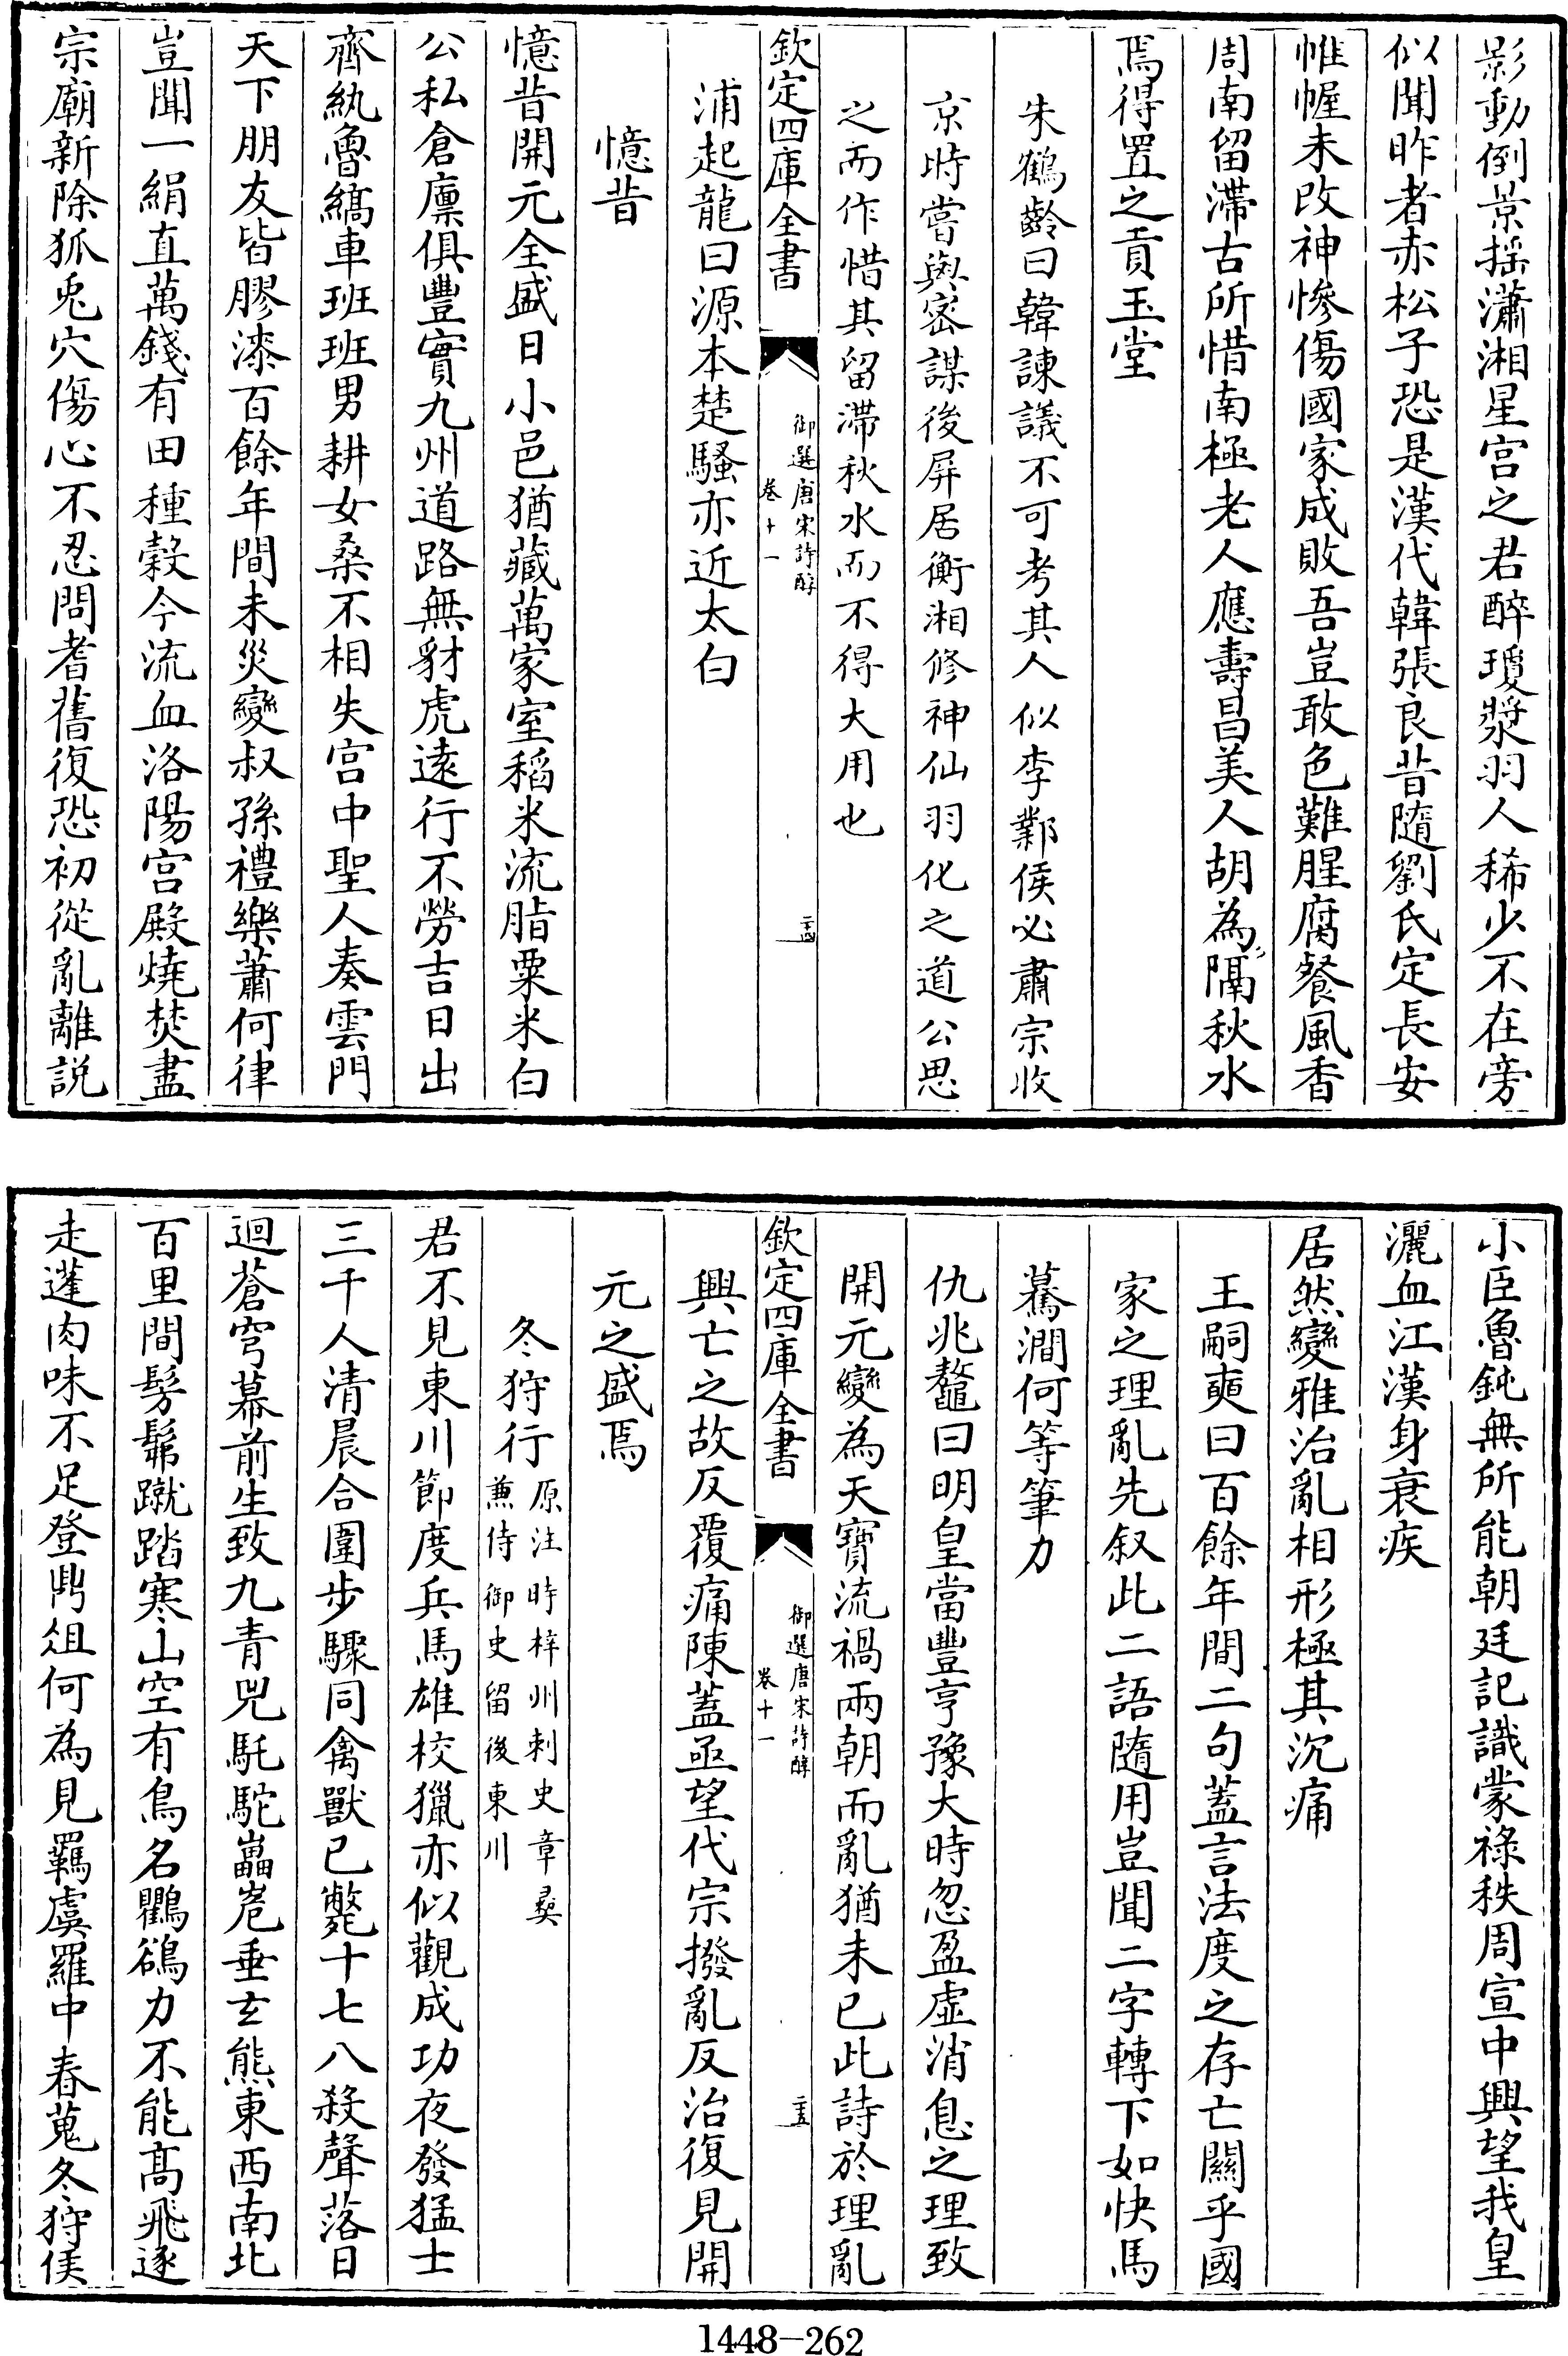 影動倒景揺瀟湘星宫之君醉瓊漿羽人稀少不在旁
似聞昨者赤松子恐是漢代韓張良昔隨劉氏定長安
帷幄未改神慘傷國家成敗吾豈敢色難腥腐餐風香
周南留滯古所惜南極老人應壽昌美人胡為隔秋水
焉得置之貢玉堂
朱鶴齡曰韓諫議不可考其人似李鄴侯必肅宗收
京時嘗與密謀後屏居衡湘修神仙羽化之道公思
之而作惜其留滯秋水而不得大用也
欽定四庫全書
御選唐宋詩醇
卷十一
二十四
浦起龍曰源本楚騷亦近太白
憶昔
憶昔開元全盛日小邑猶藏萬家室稻米流脂粟米白
公私倉廪俱豐實九州道路無豺虎逺行不勞吉日出
齊紈魯縞車班班男耕女桑不相失宫中聖人奏雲門
天下朋友皆膠漆百餘年間未災變叔孫禮樂蕭何律
豈聞一絹直萬錢有田種榖今流血洛陽宫殿燒焚盡
宗廟新除狐兎穴傷心不忍問耆舊復恐初從亂離説
小臣魯鈍無所能朝廷記識蒙祿秩周宣中興望我皇
灑血江漢身衰疾
居然變雅治亂相形極其沉痛
王嗣奭曰百餘年間二句蓋言法度之存亡關乎國
家之理亂先叙此二語隨用豈聞二字轉下如快馬
驀澗何等筆力
仇兆鼇曰明皇當豐亨豫大時忽盈虛消息之理致
開元變為天寶流禍兩朝而亂猶未已此詩於理亂
欽定四庫全書
御選唐宋詩醇
卷十一
二十五
興亡之故反覆痛陳蓋亟望代宗撥亂反治復見開
元之盛焉
冬狩行原注時梓州刺史章彝
兼侍御史留後東川
君不見東川節度兵馬雄校獵亦似觀成功夜發猛士
三千人清晨合圍步驟同禽獸已斃十七八殺聲落日
迴蒼穹幕前生致九青兕馲駝嶵峞垂𤣥熊東西南北
百里間髣髴蹴踏寒山空有鳥名鸜鵒力不能髙飛逐
走蓬肉味不足登鼎俎何為見羈虞羅中春蒐冬狩侯
1448-262